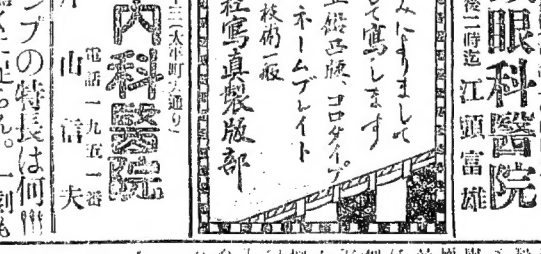 眼科醫院
後二時迄 江頭富雄
みによりまして
して寫します
鉛凸版、コロタイプ
ネームプレイト
技術一般
社寫真製版部
三(大平町大通り)
内科醫院
電話一九五一番
山信夫
プの特長は何
に足らん。一刻も